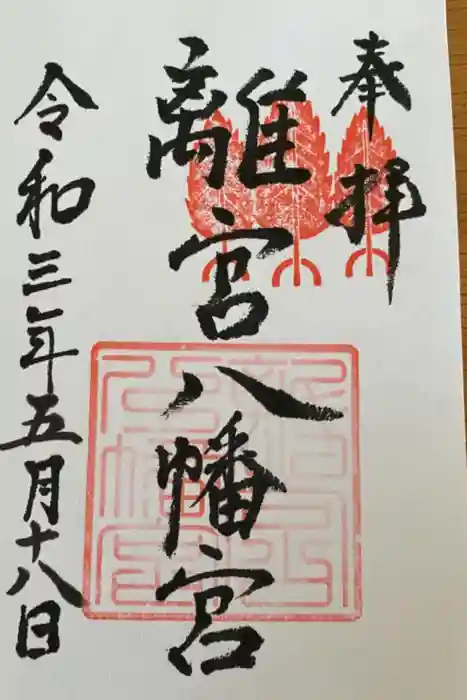 奉拝
離宮八幡宮
令和三年五月十八日